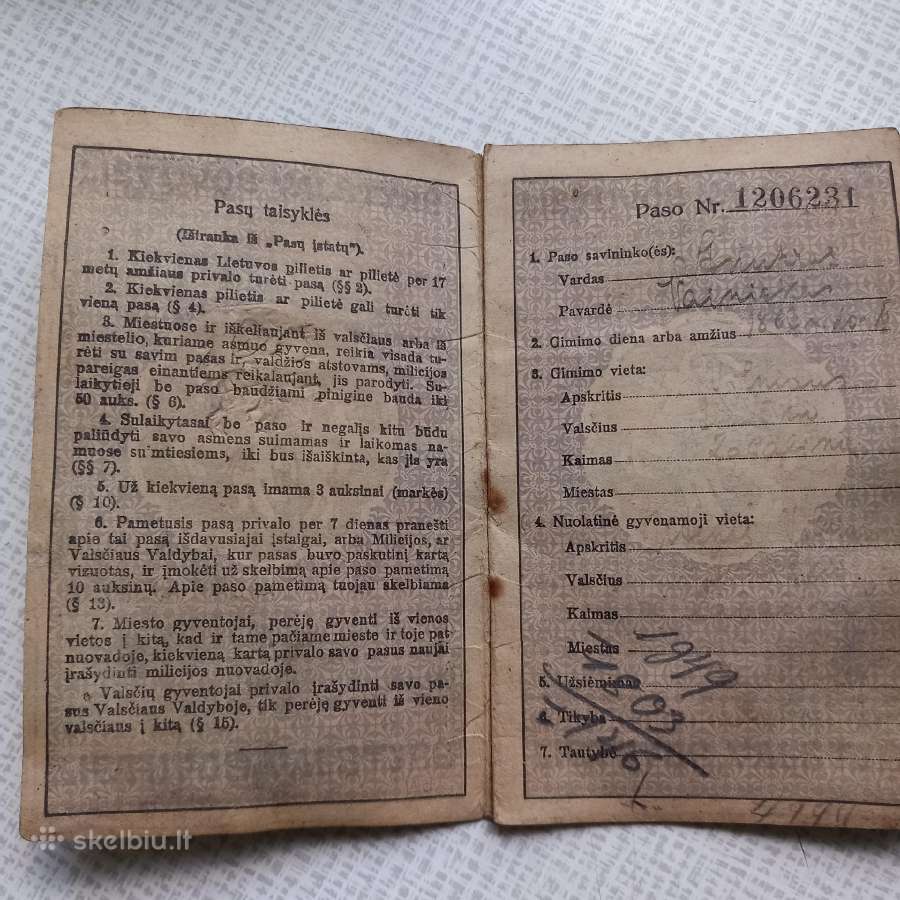 Pasų taisyklės
(Ištrauka iš „Pasų įstatų").
1. Kiekvienas Lietuvos pilietis ar pilietė per 17
metų amžiaus privalo turėti pasą (§§ 2).
2. Kiekvienas pilietis ar pilietė gali turėti tik
vieną pasą (§ 4).
3. Miestuose ir iškeliaujant iš valsčiaus arba iš
miestelio, kuriame asmuo gyvena, reikia visada tu-
rėti su savim pasas ir, valdžios atstovams, milicijos
pareigas einantiems reikalaujant, jis parodyti. Su-
laikytieji be paso baudžiami pinigine bauda iki
50 auks. (§ 6).
4. Sulaikytasai be paso ir negalįs kitu būdu
paliudyti savo asmens suimamas ir laikomas na-
muose suimtiesiems, iki bus išaiškinta, kas jis yra
(§§ 7).
5. Už kiekvieną pasą imama 3 auksinai (markės)
(§ 10).
6. Pametusis pasą privalo per 7 dienas pranešti
apie tai pasą išdavusiajai įstaigai, arba Milicijos, ar
Valsčiaus Valdybai, kur pasas buvo paskutinį kartą
vizuotas, ir įmokėti už skelbimą apie paso pametimą
10 auksinų. Apie paso pametimą tuojau skelbiama
(§ 13).
7. Miesto gyventojai, perėję gyventi iš vienos
vietos į kitą, kad ir tame pačiame mieste ir toje pat
nuovadoje, kiekvieną kartą privalo savo pasus naujai
įrašydinti milicijos nuovadoje.
Valsčių gyventojai privalo įrašydinti savo pa-
sus Valsčiaus Valdyboje, tik perėję gyventi iš vieno
valsčiaus į kitą (§ 15).
Paso Nr. 1206231
1. Paso savininko(ės):
Vardas
Pavardė
2. Gimimo diena arba amžius
3. Gimimo vieta:
Apskritis
Valsčius
Kaimas
Miestas
4. Nuolatinė gyvenamoji vieta:
Apskritis
Valsčius
Kaimas
Miestas
1949
5. Užsiėmimas
6. Tikyba
7. Tautybė
skelbiu.lt